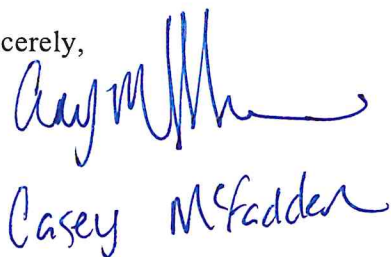 cerely,
Casey McFadden